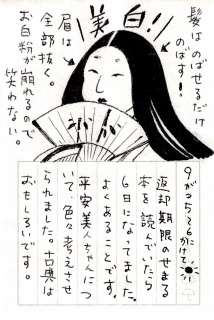 髪はのばせるだけ
のばす!!
美白!!
眉は
全部抜く。
お白粉が崩れるので
笑わない。
6にかけて
返却期限のせまる
本を読んでいたら
6日になってました。
よくあることです。
平安美人ちゃんにつ
いて、色々考えさせ
られました。古典は
おもしろいです。